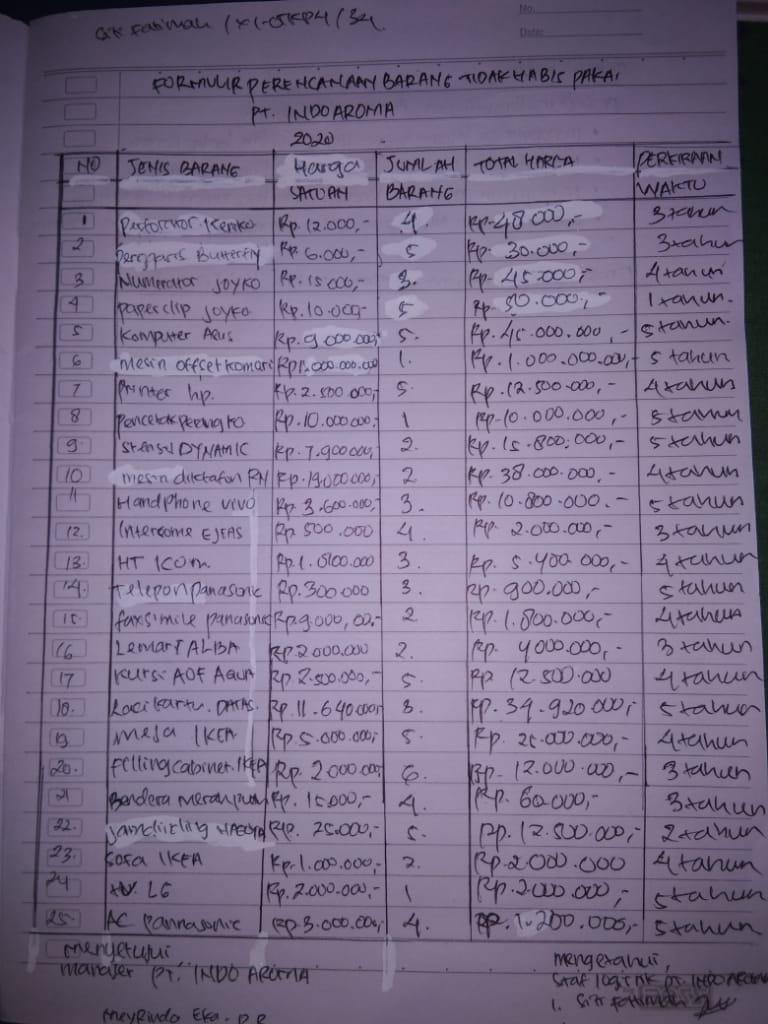 Siti Fatimah / XI-OTKP4 / 34.
No.
Date:
FORMULIR PERENCANAAN BARANG TIDAK HABIS PAKAI
PT. INDO AROMA
2020
NO JENIS BARANG Harga SATUAN JUMLAH BARANG TOTAL HARGA PERKIRAAN WAKTU
1 Perforator Kenko Rp. 12.000,- 4. Rp. 48 000,- 3 tahun
2 Penggaris Butterfly Rp. 6.000,- 5 Rp. 30.000,- 3 tahun
3 Numerator JOYKO Rp. 15 000,- 3. Rp. 45.000,- 4 tahun
4 paperclip JOYKO Rp. 10.000- 5 Rp. 50.000,- 1 tahun.
5 Komputer Asus Rp. 9 000.000,- 5. Rp. 45.000.000,- 5 tahun.
6 mesin offset Rp 1.000.000.000 1. Rp. 1.000.000.000,- 5 tahun
7 Printer hp. Rp. 2.500 000,- 5. Rp. 12.500 000,- 4 tahun
8 Rp. 10.000000,- 1 Rp. 10.000.000,- 5 tahun
9. Stensil DYNAMIC Rp. 7.900000,- 2. Rp. 15.800.000,- 5 tahun
10 mesin diktafon Rp. 19.000000,- 2 Rp. 38.000.000.- 4 tahun
11 Handphone vivo Rp. 3.600.000,- 3. Rp. 10.800.000.- 5 tahun
12. Intercome Rp 500.000 4. Rp. 2.000.000,- 3 tahun
13. HT ICOM. Rp. 1.8100.000 3. Rp. 5.400 000,- 4 tahun
14. Telepon panasonic Rp. 300.000 3. Rp. 900.000,- 5 tahun
15. faxsimile panasonic Rp. 9.000,00,- 2 Rp. 1.800.000,- 4 tahun
16 Lemari ALBA Rp 2.000.000 2. Rp. 4000.000,- 3 tahun
17 Kursi Rp 2.500.000,- 5. Rp 12.500 000 4 tahun
18. Laci kartu. DATAS. Rp. 11.640.000,- 3. Rp. 34.920 000,- 5 tahun
19. meja IKEA Rp. 5.000.000,- 5. Rp. 25.000.000,- 4 tahun
20. fillingcabinet. IKEA Rp. 2.000.000,- 6. Rp. 12.000.000,- 3 tahun
21 Bendera Rp. 15.000,- 4. Rp. 60.000,- 3 tahun
22. Jam dinding Rp. 25.000,- 5. Rp. 12.500.000,- 2 tahun
23. Sofa IKEA Rp. 1.000.000,- 2. Rp. 2.000.000 4 tahun
24 tv. LG Rp. 2.000.000,- 1 Rp. 2.000.000,- 5 tahun
25. AC pannasonic Rp. 3.000.000,- 4. Rp. 1.200.000,- 5 tahun
menyetujui mengetahui,
manajer PT. INDO AROMA Staf logistik PT. INDO AROMA
1. Siti Fatimah